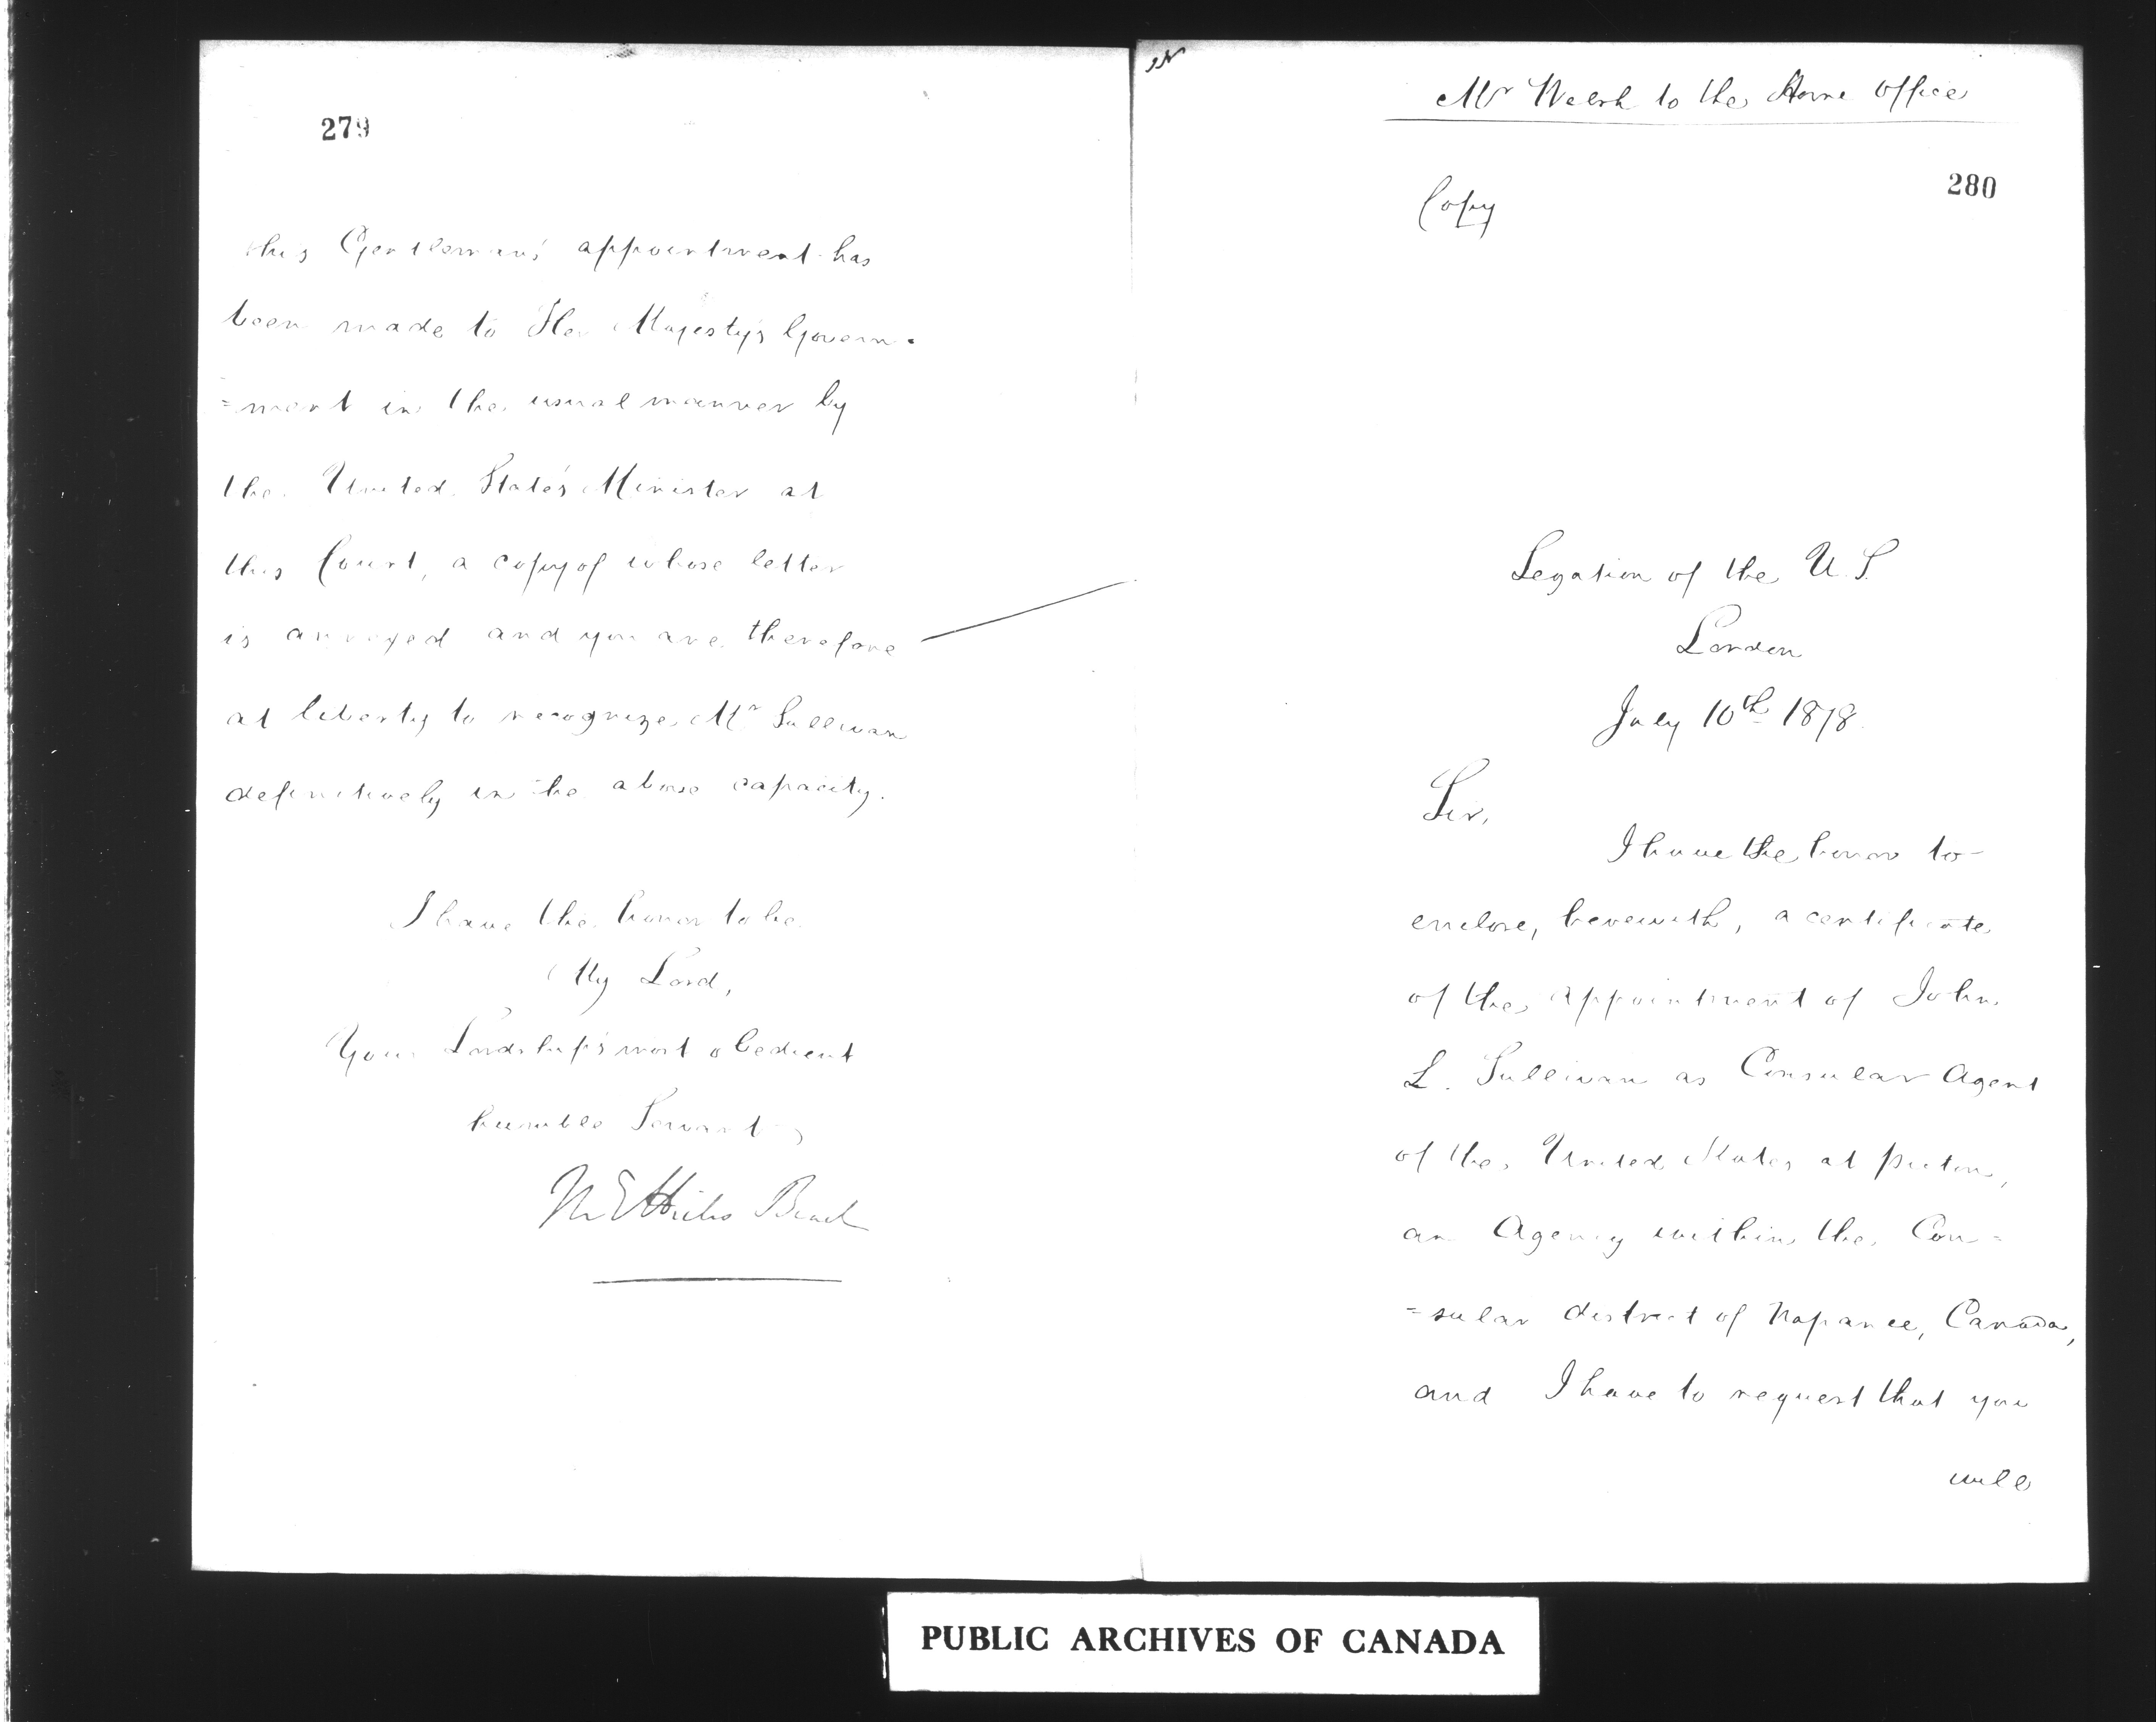 279
this Gentleman's appointment has
been made to Her Majesty's Govern-
=ment in the usual manner by
the United State's Minister at
this Court, a copy of whose letter
is annexed and you are therefore
at liberty to recognize Mr Sullivan
definitively in the above capacity.
I have the honor to be
My Lord,
Your Lordship's most obedient
humble Servant
M E Hicks Beach
Mr Welsh to the Home Office
280
Copy
Legation of the U.S.
London
July 10th 1878.
Sir,
I have the honor to
enclose, herewith, a certificate
of the appointment of John
L. Sullivan as Consular Agent
of the United States at Picton,
an Agency within the Con=
=sular district of Napanee, Canada,
and I have to request that you
will
PUBLIC ARCHIVES OF CANADA